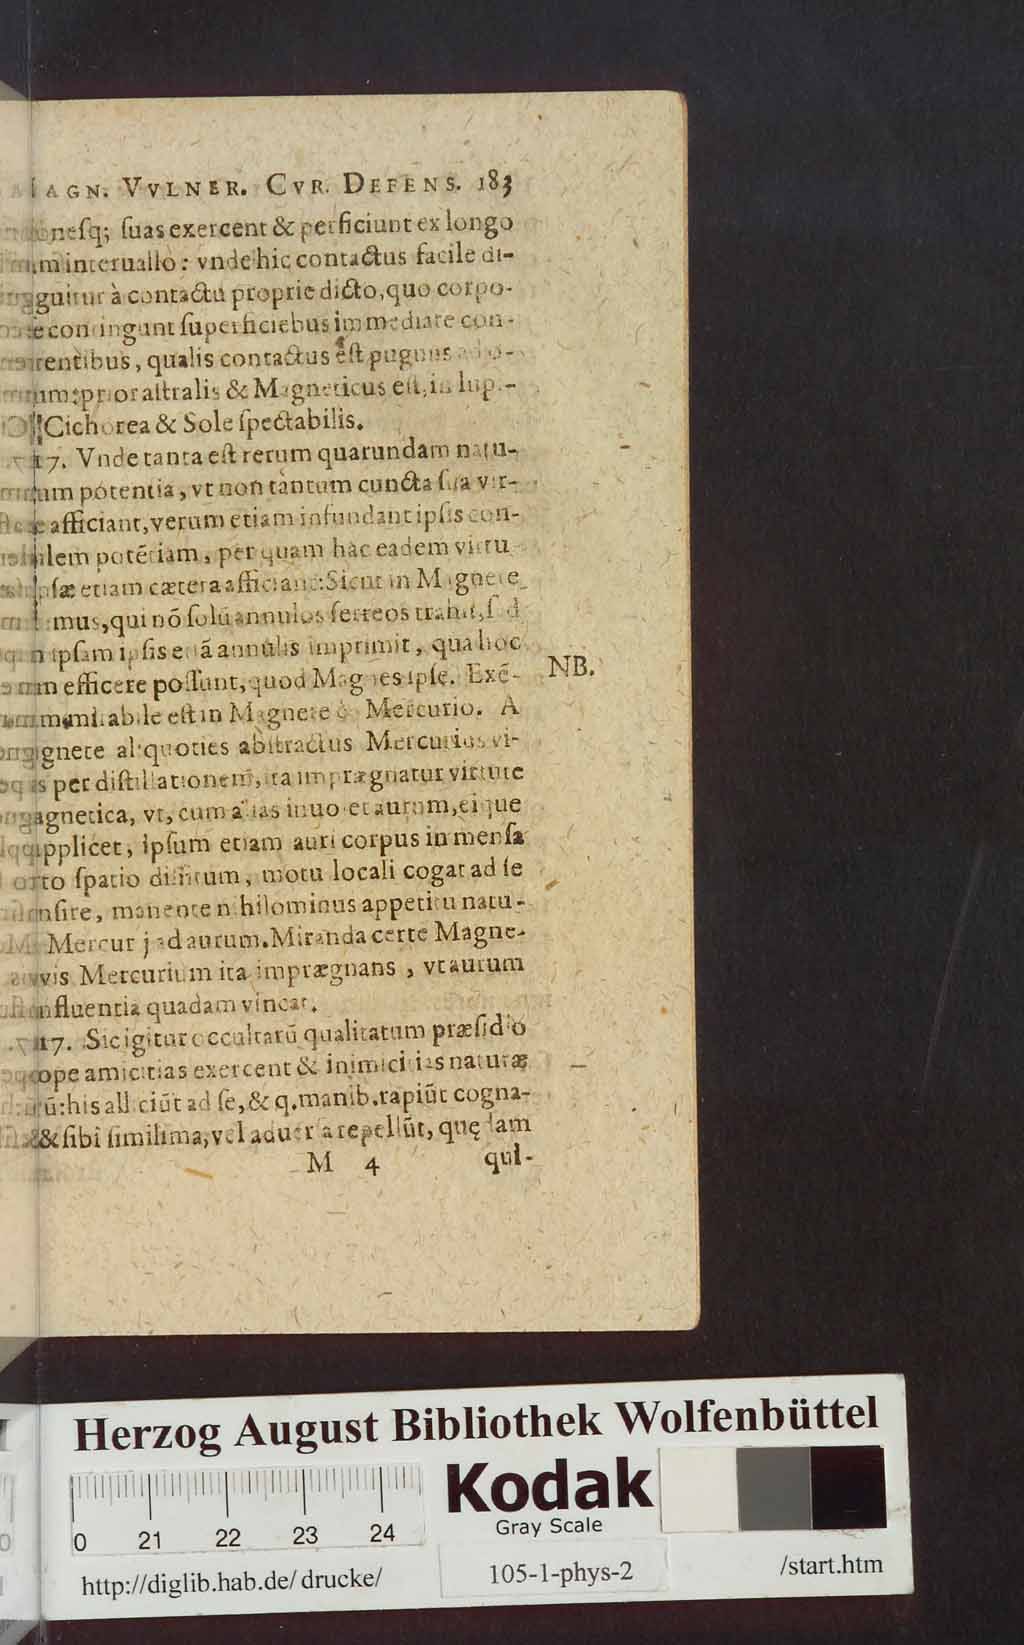 AGN. VVLNER. CVR. DEFENS. 183
neſq; ſuas exercent & perficiunt ex longo
interuallo: vnde hic contactus facile di-
guitur à contactu proprie dicto, quo corpo-
contingunt ſuperficiebus immediate con-
rentibus, qualis contactus eſt pugnus
prior aſtralis & Magneticus eſt, in lup-
Cichorea & Sole ſpectabilis.
17. Vnde tanta eſt rerum quarundam natu-
potentia, vt non tantum cuncta ſua vir-
afficiant, verum etiam infundant ipſis con-
potētiam, per quam hac eadem virtu
etiam cætera afficiant: Sicut in Magnete
mus, qui nō ſolū annulos ferreos trahit, ſed
ipſam ipſis etiā annulis imprimit, qua hoc
efficere poſſunt, quod Magnes ipſe. Exē-
NB.
mirabile eſt in Magnete & Mercurio. A
gnete aliquoties abſtractus Mercurius vi-
per diſtillationem, ita imprægnatur virtute
agnetica, vt, cum alias inuolet aurum, eique
applicet, ipſum etiam auri corpus in menſa
ſpatio diſſitum, motu locali cogat ad ſe
manente nihilominus appetitu natu-
Mercurij ad aurum. Miranda certe Magne-
vis Mercurium ita imprægnans, vt aurum
influentia quadam vincat.
17. Sic igitur occultarū qualitatum præſidio
ope amicitias exercent & inimicitias naturæ
his alliciūt ad ſe, & q. manib. rapiūt cogna-
& ſibi ſimilima, vel aduerſa repellūt, quędam
M 4 qui-
Herzog August Bibliothek Wolfenbüttel
Kodak
Gray Scale
0 21 22 23 24
http://diglib.hab.de/drucke/ 105-1-phys-2 /start.htm